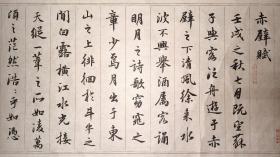 赤壁賦
壬戌之秋七月既望蘇
子與客泛舟遊于赤
壁之下清風徐來水
波不興舉酒屬客誦
明月之詩歌窈窕之
章少焉月出于東
山之上徘徊於斗牛之
間白露橫江水光接
天縱一葦之所如凌萬
頃之茫然浩〻乎如馮